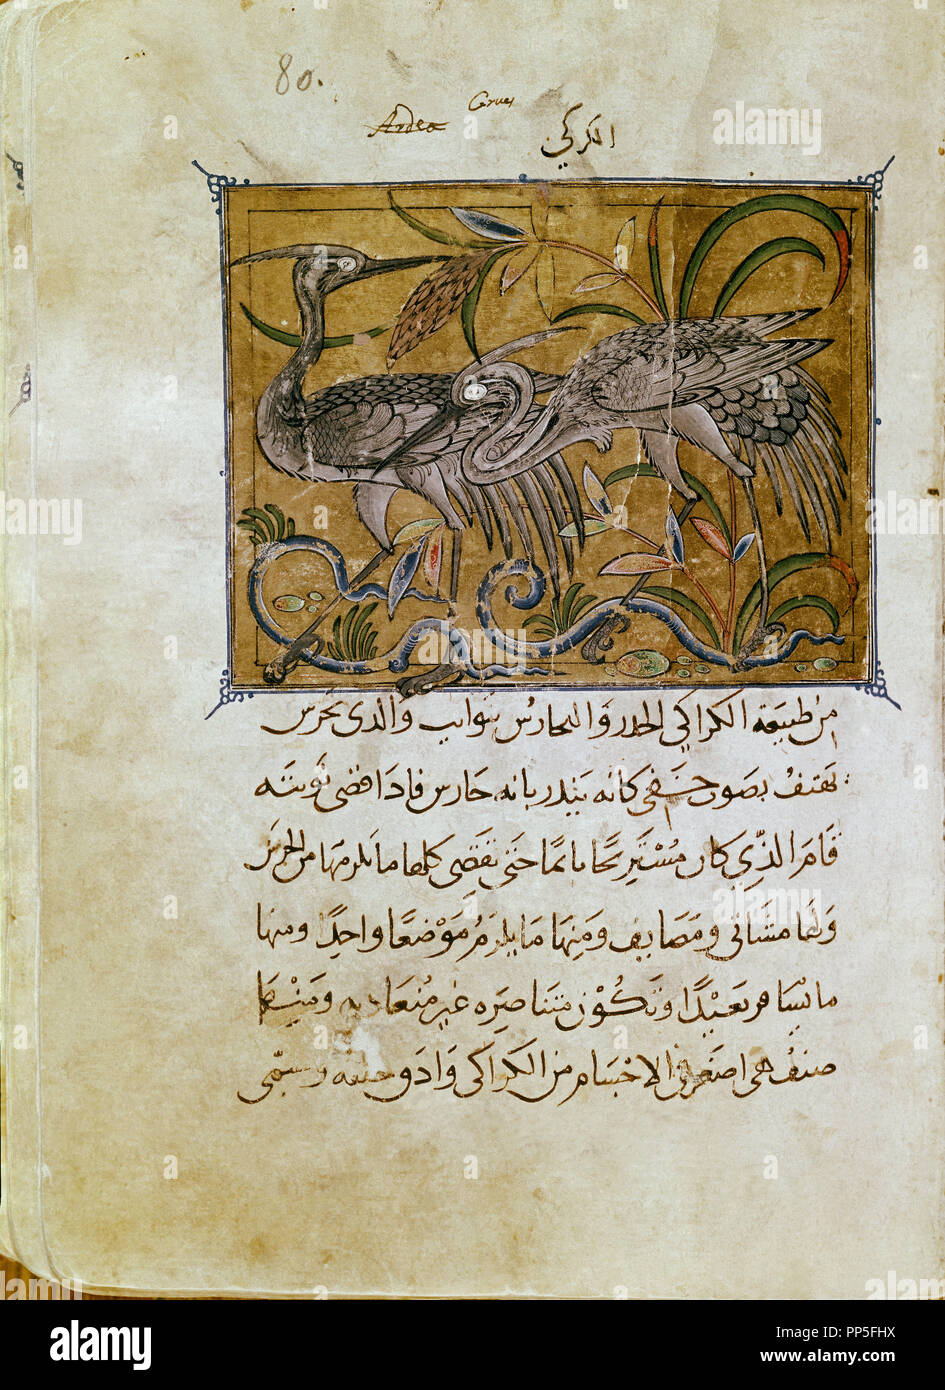 80.
Grues
Ardea
الكركي
من طبيعة الكراكي الحذر والتحارس بنوايب والذي يحرس
يهتف بصوت خفي كانه ينذر بانه حارس فاذا قضى نوبته
قام الذي كان مُسْتَرِيحًا نائمًا حتى تقضي كلها ما يلزمها من الحرس
ولها مشاتي ومصايف ومنها ما يلزم موضعًا واحدًا ومنها
ما يسافر بعيدًا وتكون متناصره غير متعاديه ومنها
صنف هي اصغر الاجسام من الكراكي وتسمى
alamy
Image ID: PP5FHX
www.alamy.com